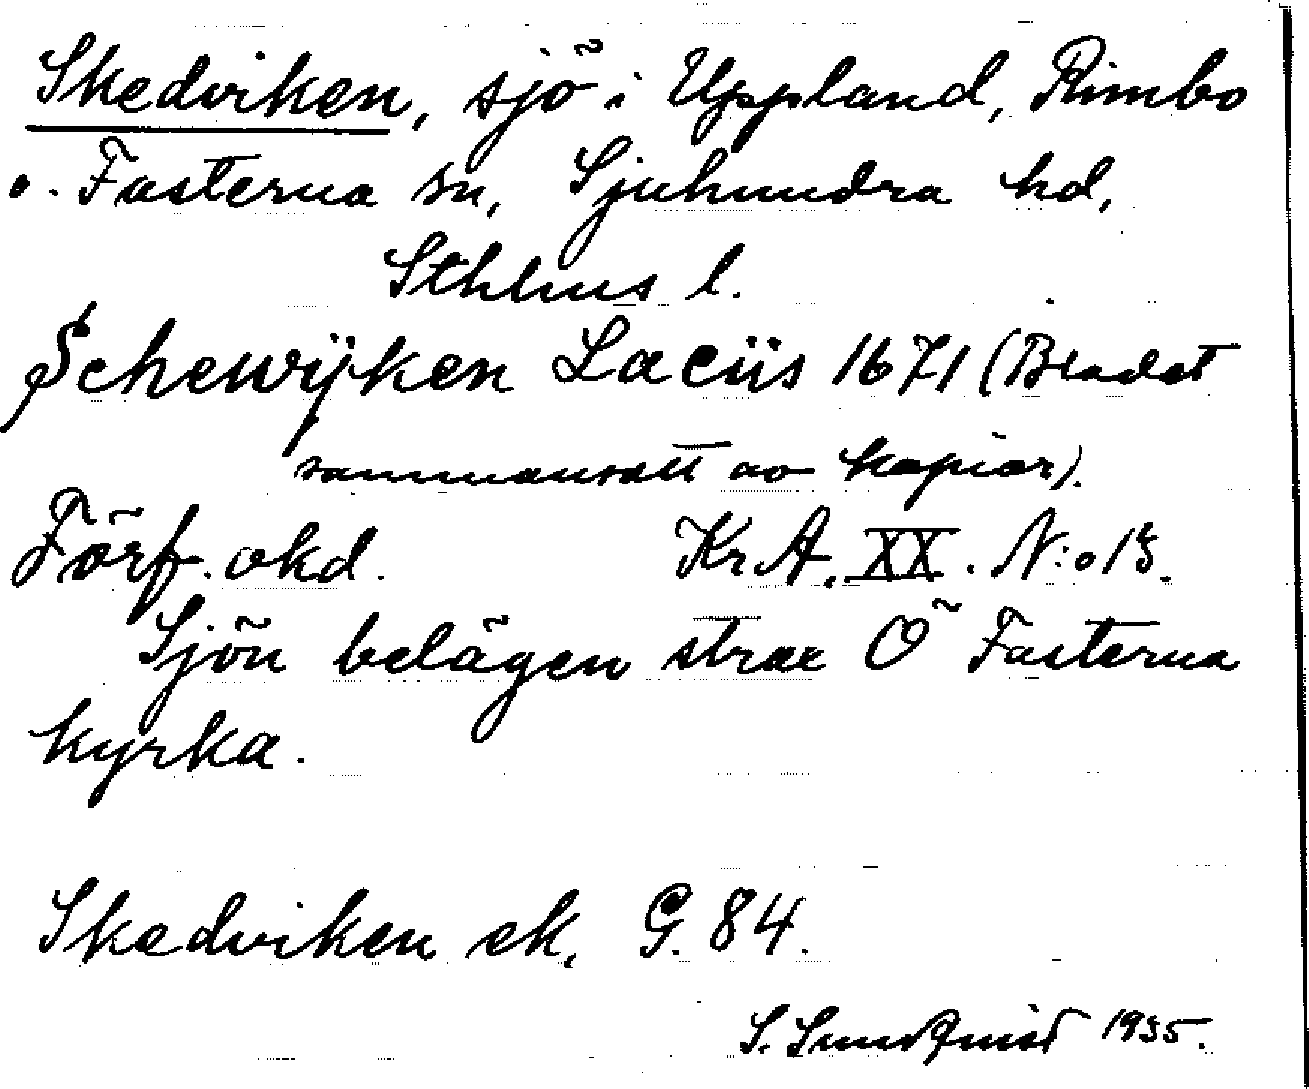 Skedviken, sjö i Uppland, Rimbo
o. Fasterna sn, Sjuhundra hd,
Sthlms l.
Schewijken Lacus 1671 (Bladet
sammansatt av kopior).
Förf. okd. Kr.A. XX. N:o 13.
Sjön belägen strax Ö Fasterna
kyrka.
Skedviken ek. G. 84.
S. Sundquist 1935.